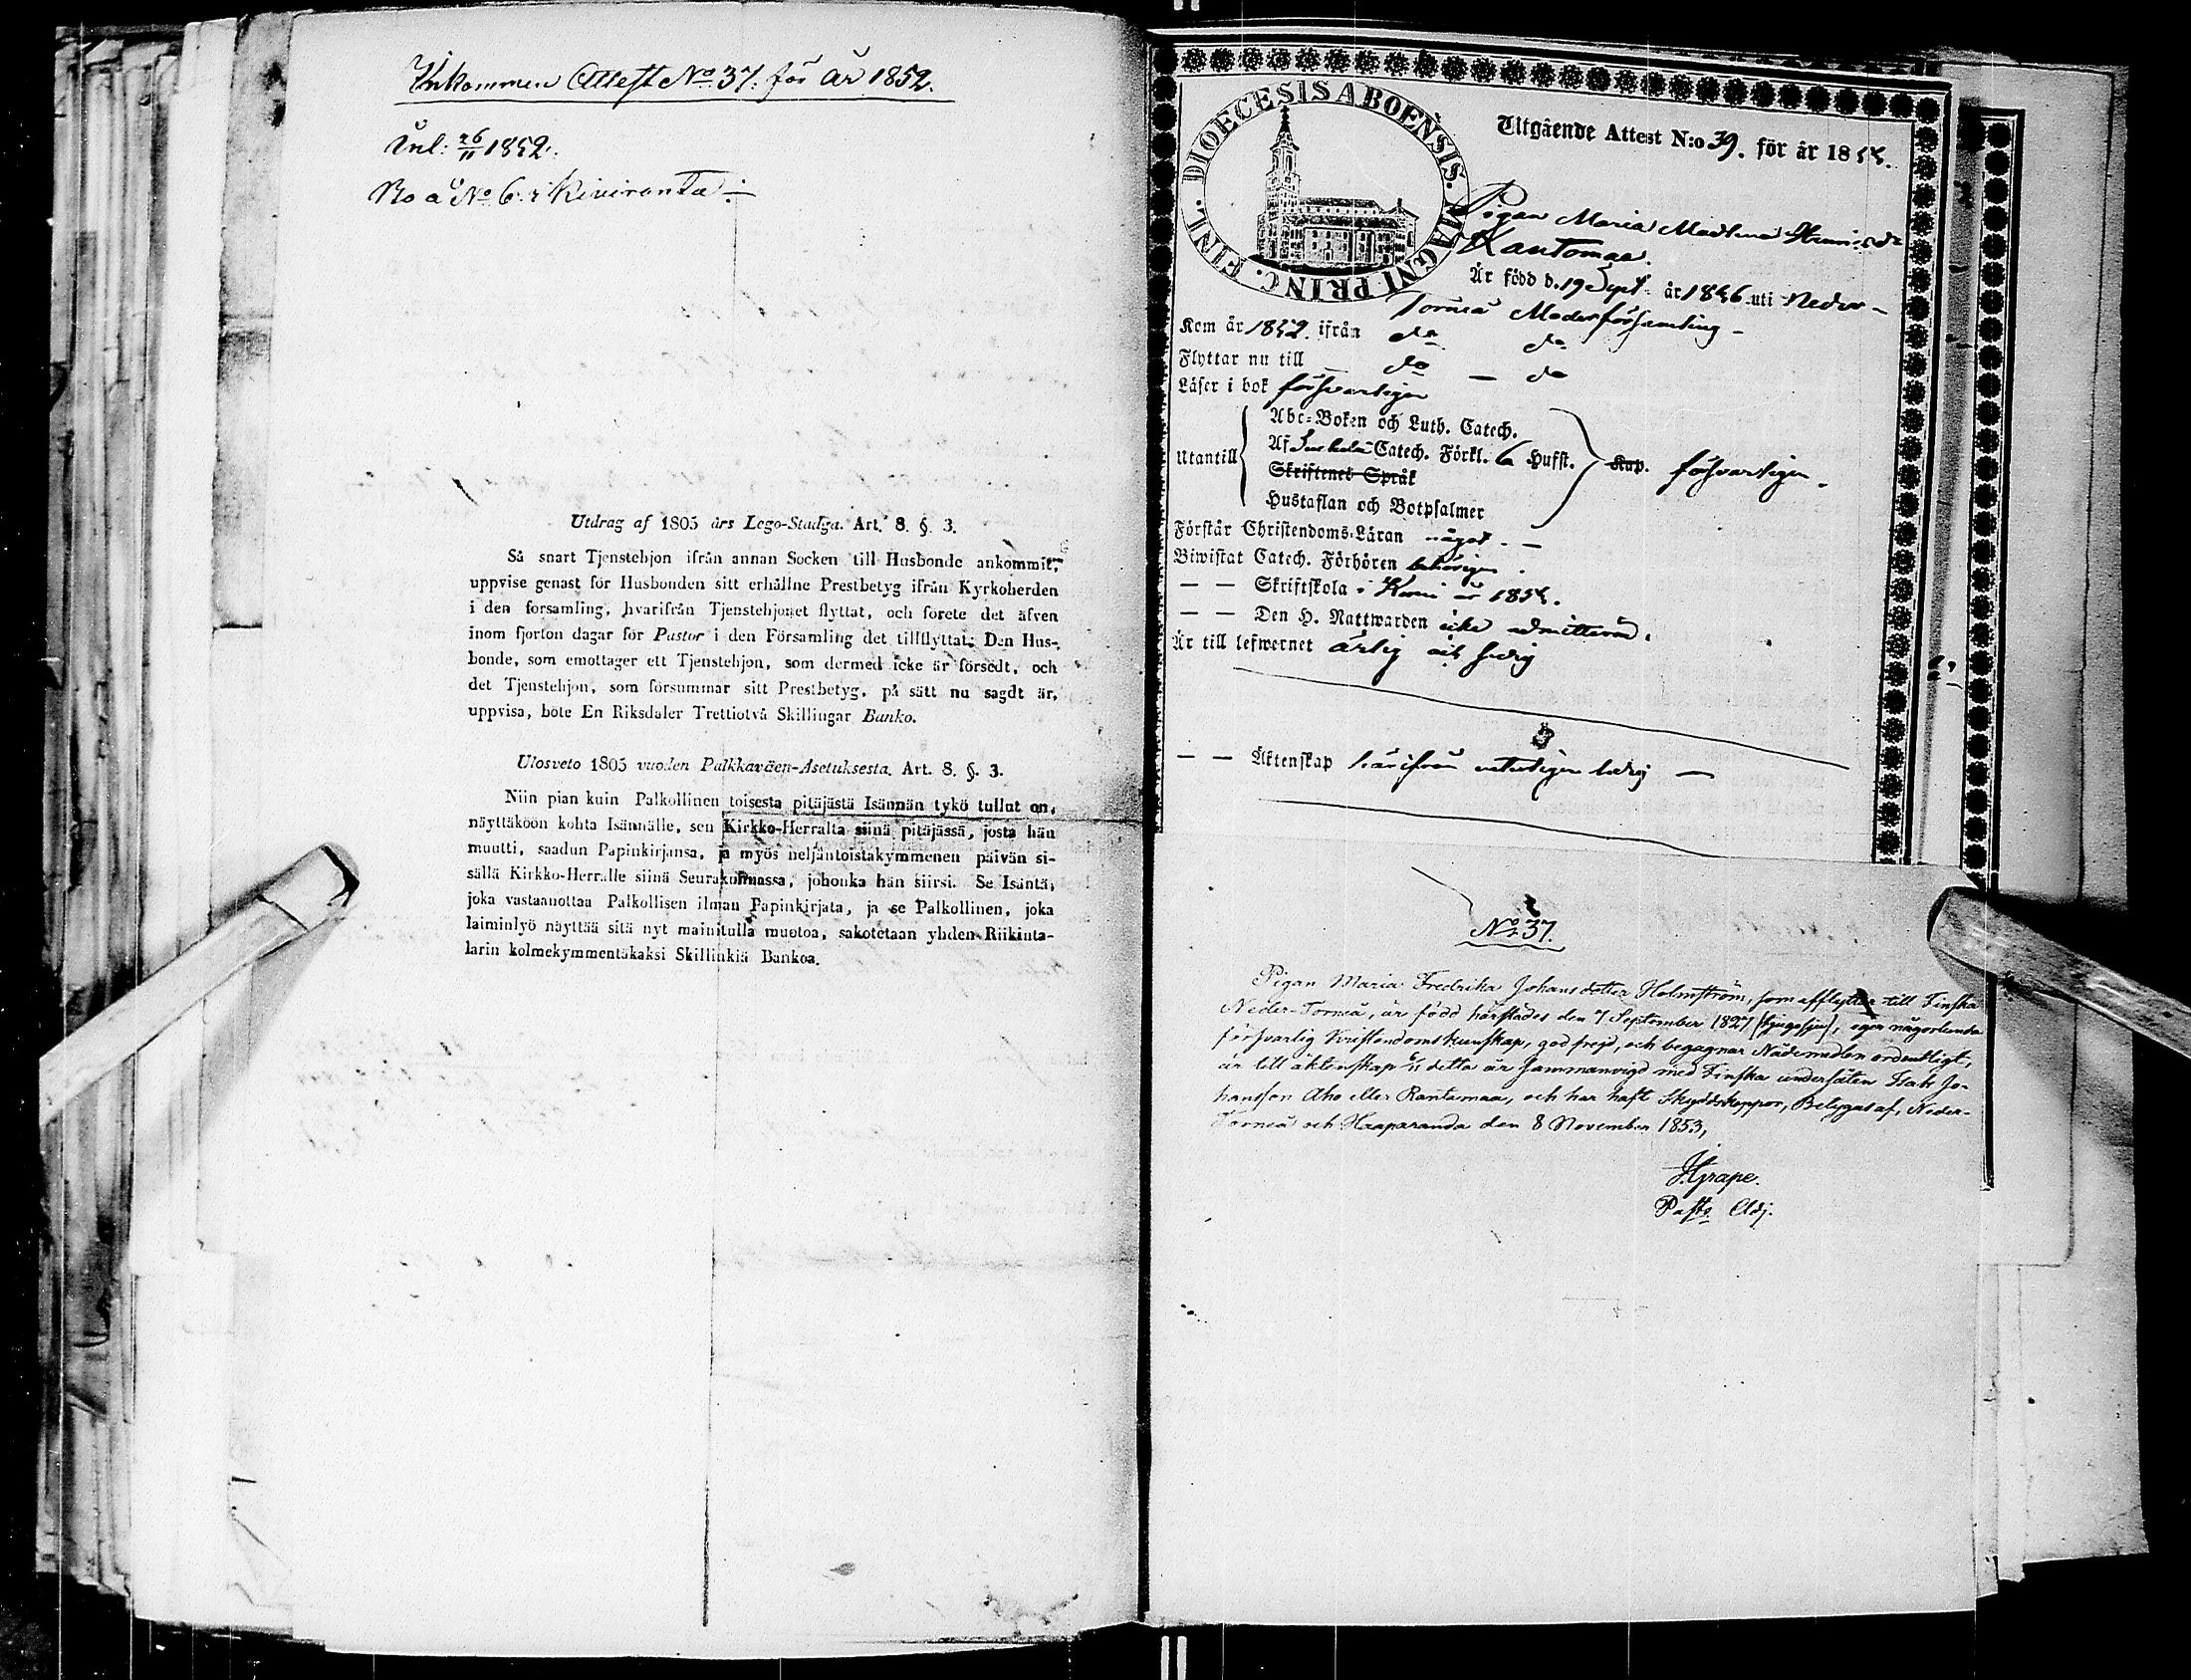 Inkommen Attest No 37. för år 1852.
Inl: 26/11 1852.
Bo å No 6. i Kiviranta.
Utdrag af 1805 års Lego-Stadga. Art. 8. §. 3.
Så snart Tjenstehjon ifrån annan Socken till Husbonde ankommit,
uppvise genast för Husbonden sitt erhållne Prestbetyg ifrån Kyrkoherden
i den församling, hvarifrån Tjenstehjonet flyttat, och förete det äfven
inom fjorton dagar för Pastor i den Församling det tillflyttat; Den Hus-
bonde, som emottager ett Tjenstehjon, som dermed icke är försedt, och
det Tjenstehjon, som försummar sitt Prestbetyg, på sätt nu sagdt är,
uppvisa, böte En Riksdaler Trettiotvå Skillingar Banko.
Ulosveto 1805 vuoden Palkkaväen-Asetuksesta. Art. 8. §. 3.
Niin pian kuin Palkollinen toisesta pitäjästä Isännän tykö tullut on,
näyttäköön kohta Isännälle, sen Kirkko-Herralta siinä pitäjässä, josta hän
muutti, saadun Papinkirjansa, ja myös neljäntoistakymmenen päivän si-
sällä Kirkko-Herralle siinä Seurakunnassa, johonka hän siirsi. Se Isäntä,
joka vastaanottaa Palkollisen ilman Papinkirjata, ja se Palkollinen, joka
laiminlyö näyttää sitä nyt mainitulla muotoa, sakotetaan yhden Riikinta-
larin kolmekymmentäkaksi Skillinkiä Bankoa.
DIOECESIS ABOENSIS. MAGNI PRINC. FINL.
Utgående Attest N:o 39. för år 1855.
Pigan Maria
Är född d. 19 Sept. år 1836 uti Neder-
Torneå Moderförsamling -
Kom år 1852. ifrån do do
Flyttar nu till do - do
Läser i bok försvarligen
Abc-Boken och Luth. Catech.
Utantill Af Catech. Förkl. 6 Hufst. Kap. försvarligen.
Skriftenes Språk
Hustaflan och Botpsalmer
Förstår Christendoms-Läran något. -
Biwistat Catech. Förhören behörigen.
— — Skriftskola i Kemi år 1855.
— — Den H. Nattwarden icke admitterad.
Är till lefwernet ärlig och sedig
— — Äktenskap härifrån veterligen ledig —
No 37.
Pigan Maria Fredrika Johansdotter Holmström, som afflyttar till Finska
Neder-Torneå, är född härstädes den 7 September 1827 (tjugosju), eger någorlunda
försvarlig Kristendomskunskap, god frejd, och begagnar Nådemedlen ordentligt,
är till äktenskap detta år sammanvigd med Finska undersåten Isak Jo-
hansson Aho eller Rantamaa, och har haft Skyddskoppor, Betygas af, Neder-
Torneå och Haaparanda den 8 November 1853,
J. Grape.
Past. Adj.